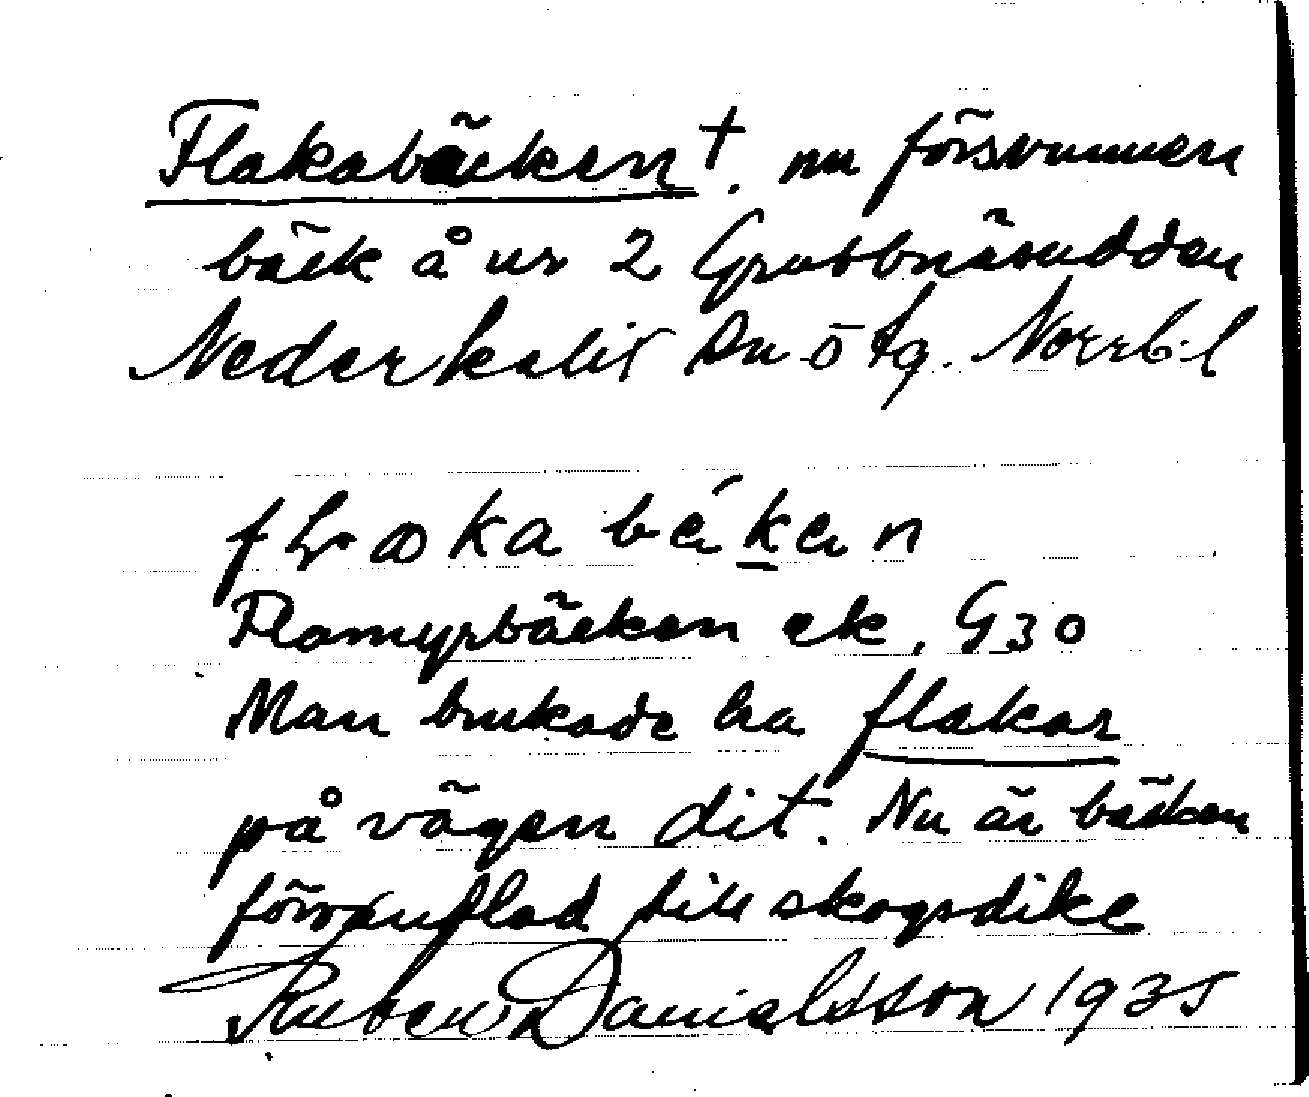 Flakabäcken †. nu försvunnen
bäck å nr 2 Grubbnäsudden
Nederkalix sn ö tg. Norrb. l
flaka bäken
Flamyrbäcken ek. G30
Man brukade ha flakar
på vägen dit. Nu är bäcken
förvanflad till skogsdike
Ruben Danielsson 1935